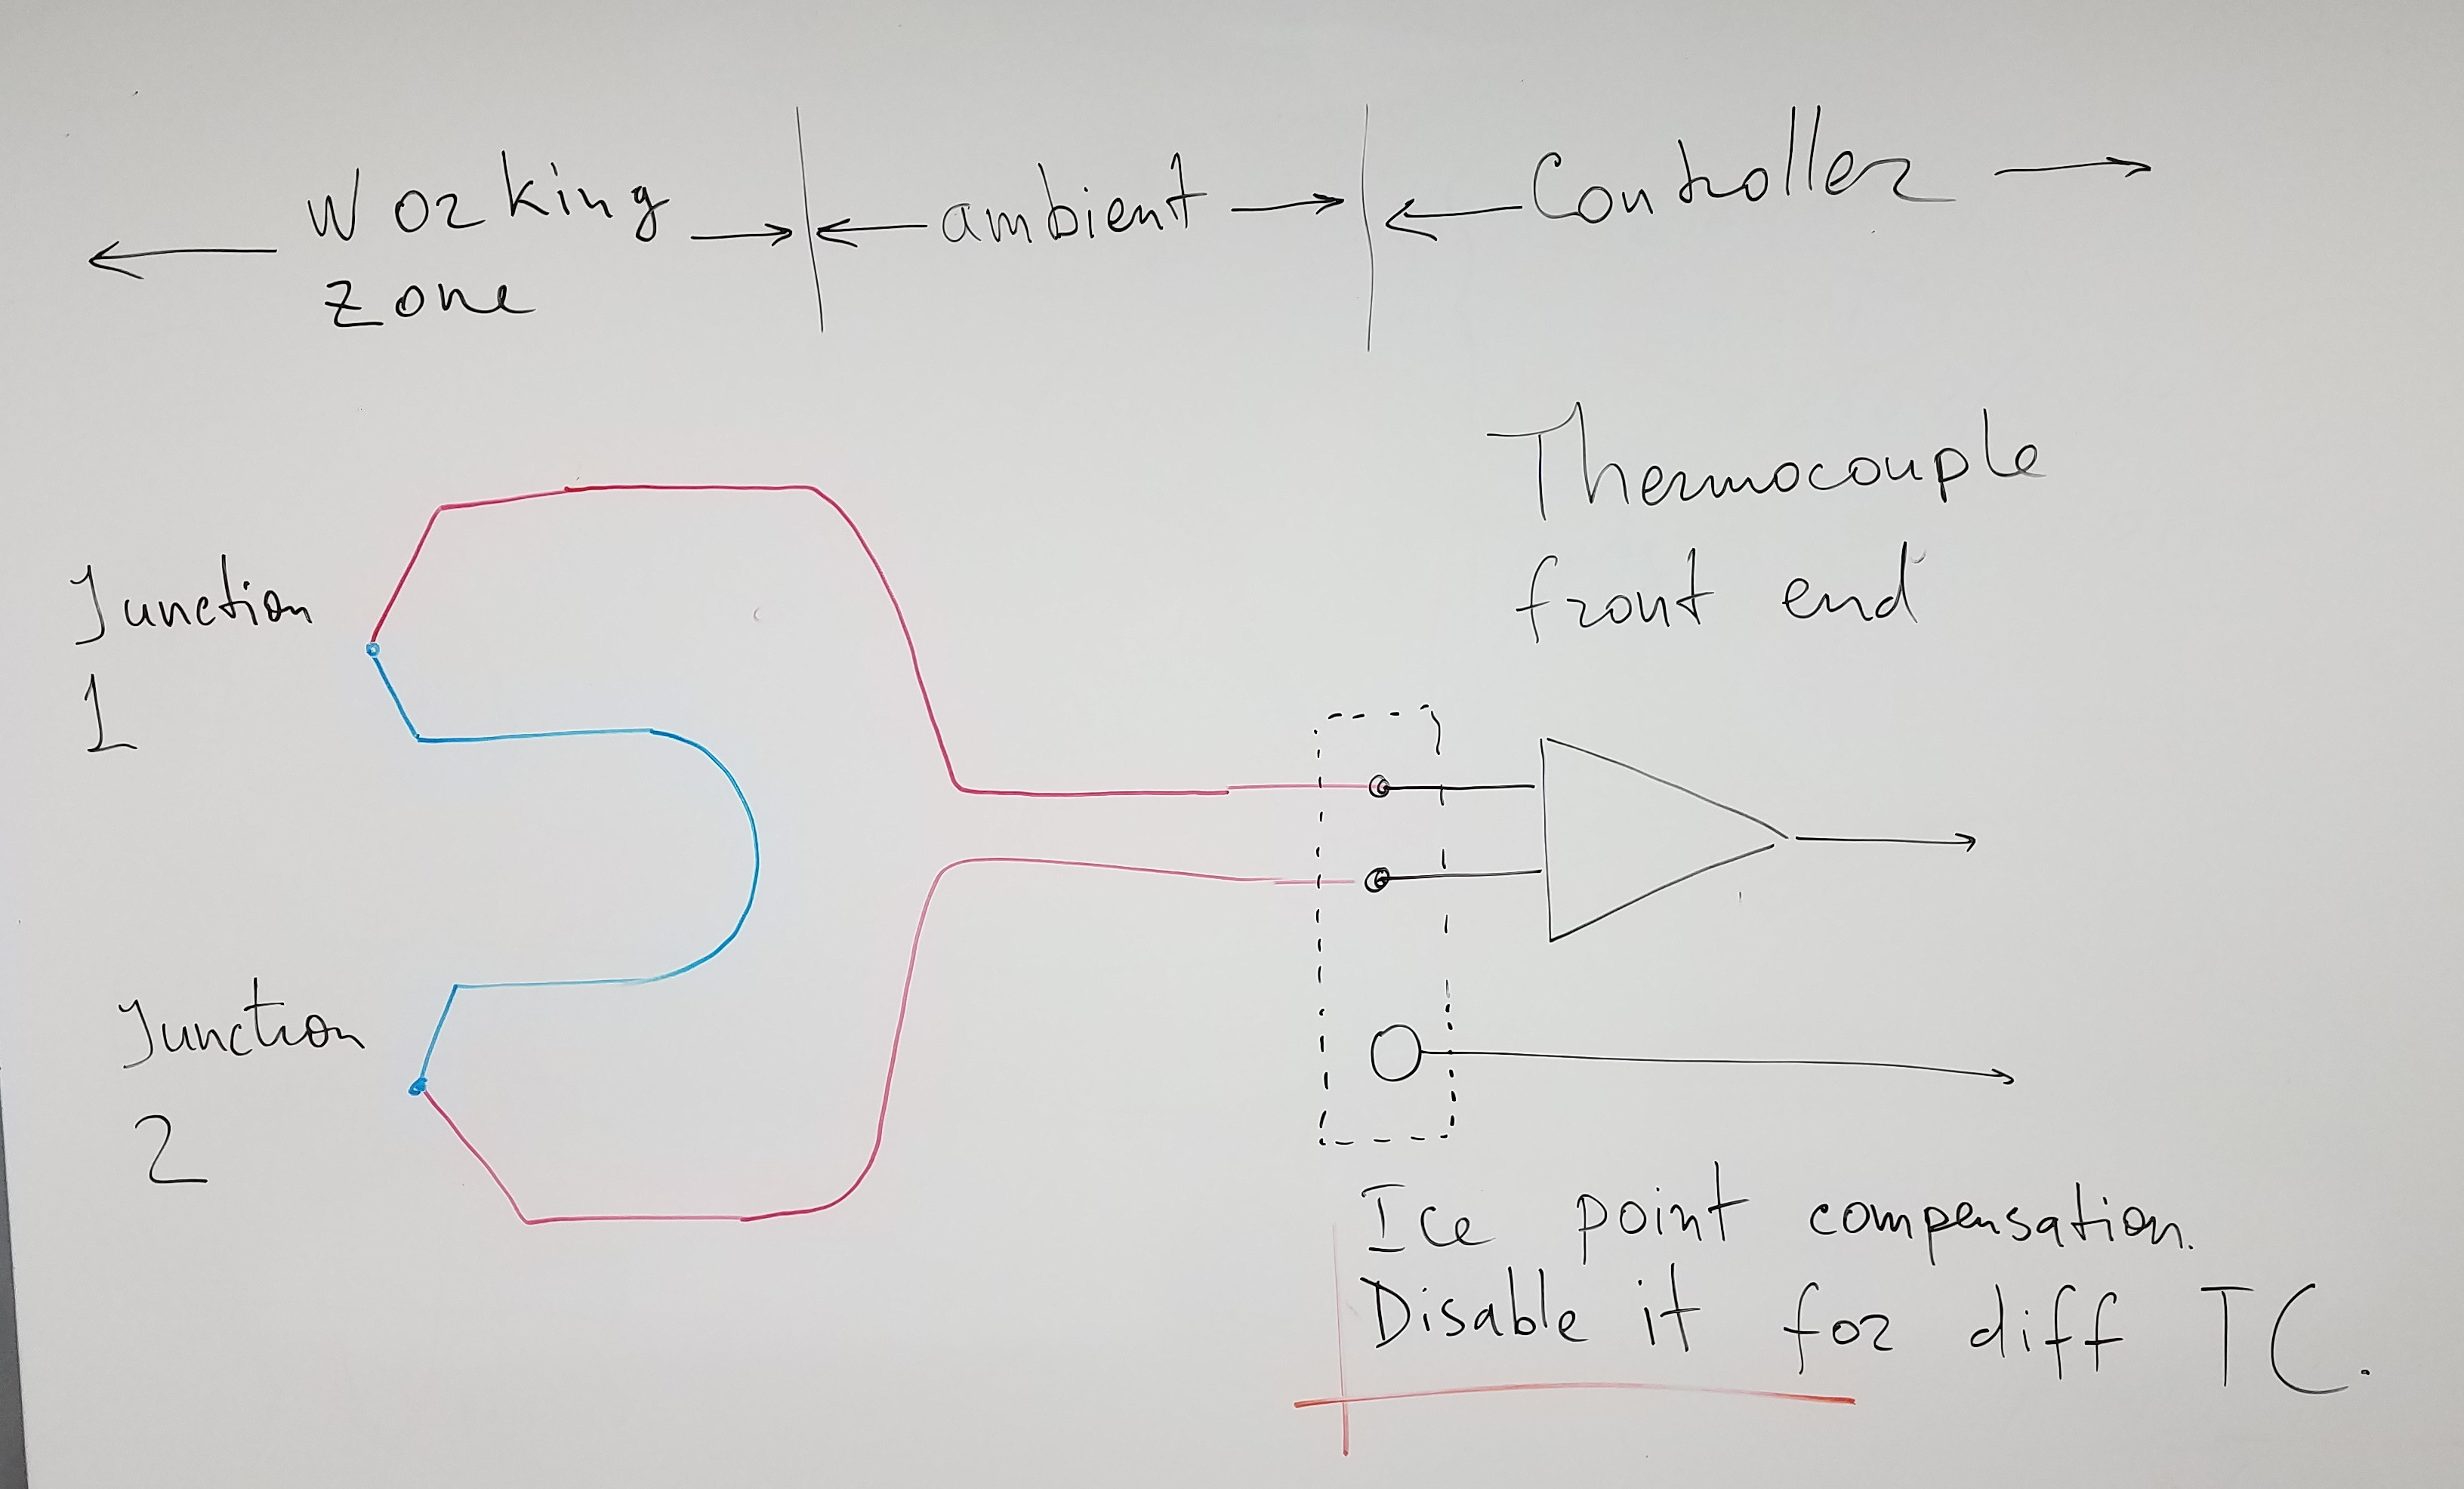 Working
zone
ambient
Controller
Thermocouple
front end
Junction
1
Junction
2
Ice point compensation.
Disable it for diff TC.